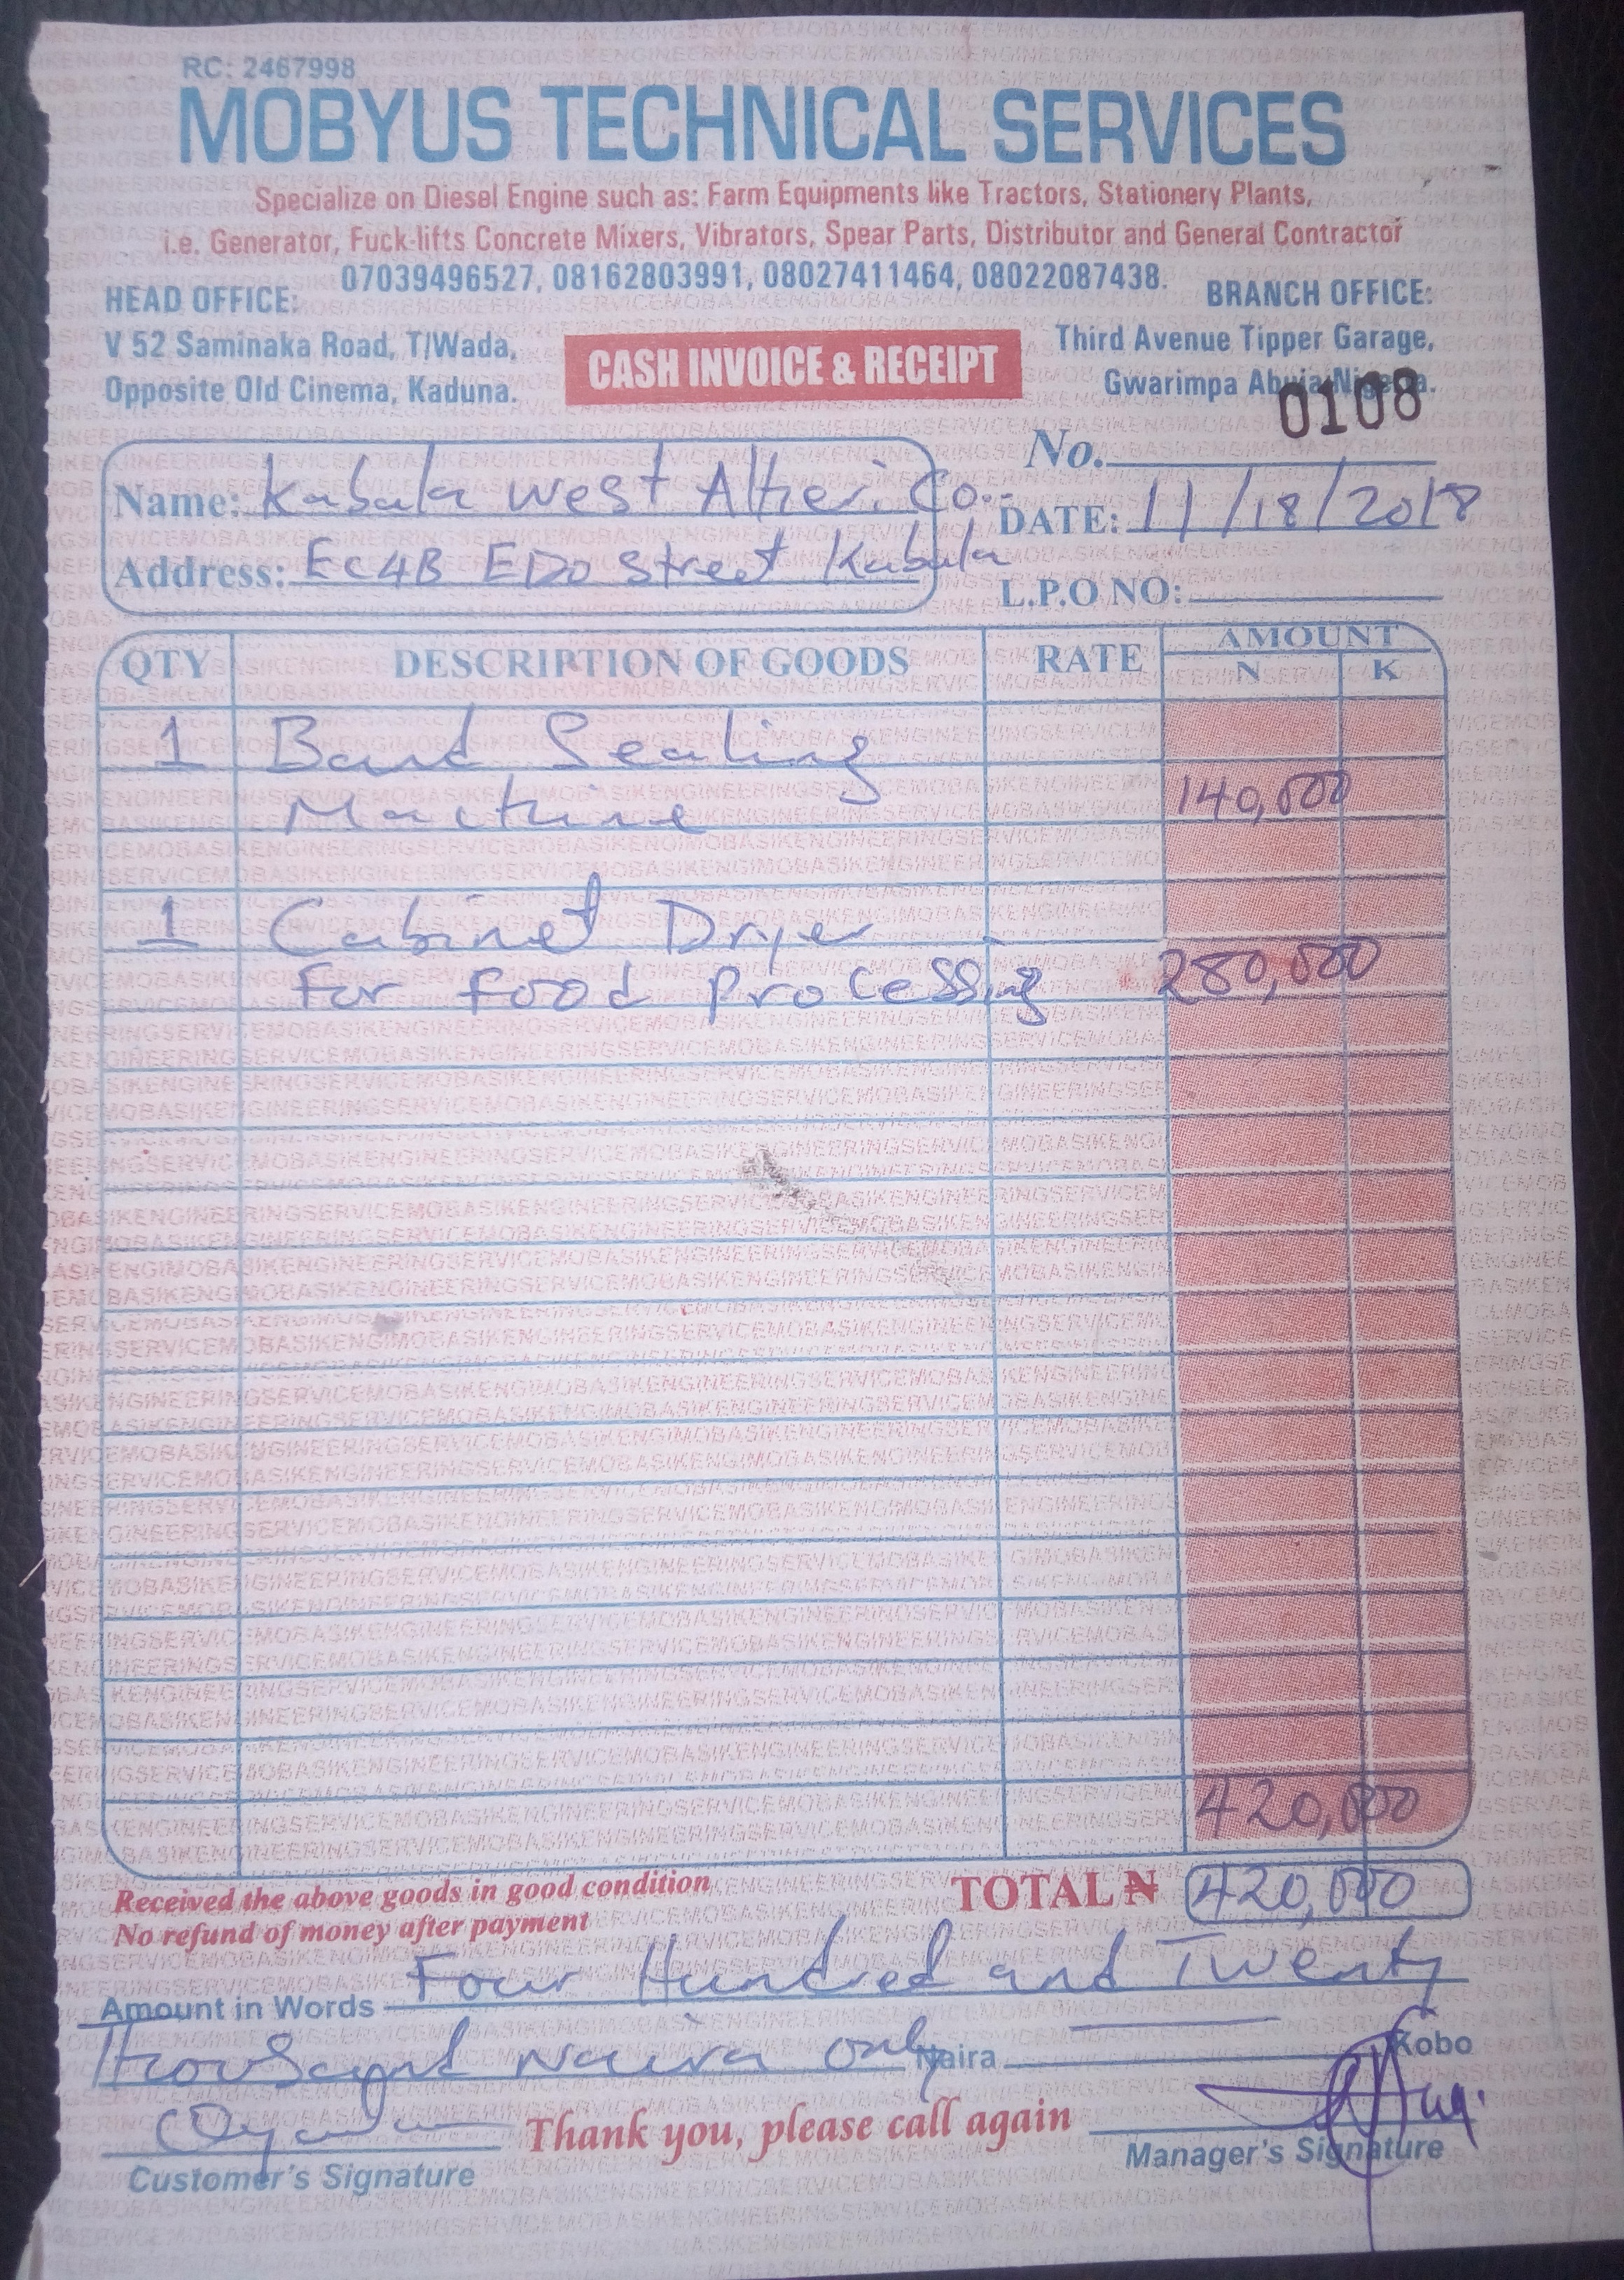 RC: 2467998
MOBYUS TECHNICAL SERVICES
Specialize on Diesel Engine such as: Farm Equipments like Tractors, Stationery Plants,
i.e. Generator, Fuck-lifts Concrete Mixers, Vibrators, Spear Parts, Distributor and General Contractor
07039496527, 08162803991, 08027411464, 08022087438.
HEAD OFFICE:
V 52 Saminaka Road, T/Wada,
Opposite Old Cinema, Kaduna.
CASH INVOICE & RECEIPT
BRANCH OFFICE:
Third Avenue Tipper Garage,
Gwarimpa Abuja Nigeria.
No. 0108
Name: Kabala West Co..
DATE: 11/18/2018
Address: EC4B EDO Street Kabala
L.P.O NO:
QTY DESCRIPTION OF GOODS RATE AMOUNT
N K
1 Band Sealing
Machine 140,000
1 Cabinet Dryer
For food processing 280,000
420,000
Received the above goods in good condition
No refund of money after payment
TOTAL ₦ 420,000
Amount in Words Four Hundred and Twenty
Thousand Naira only Naira Kobo
Thank you, please call again
Customer's Signature
Manager's Signature